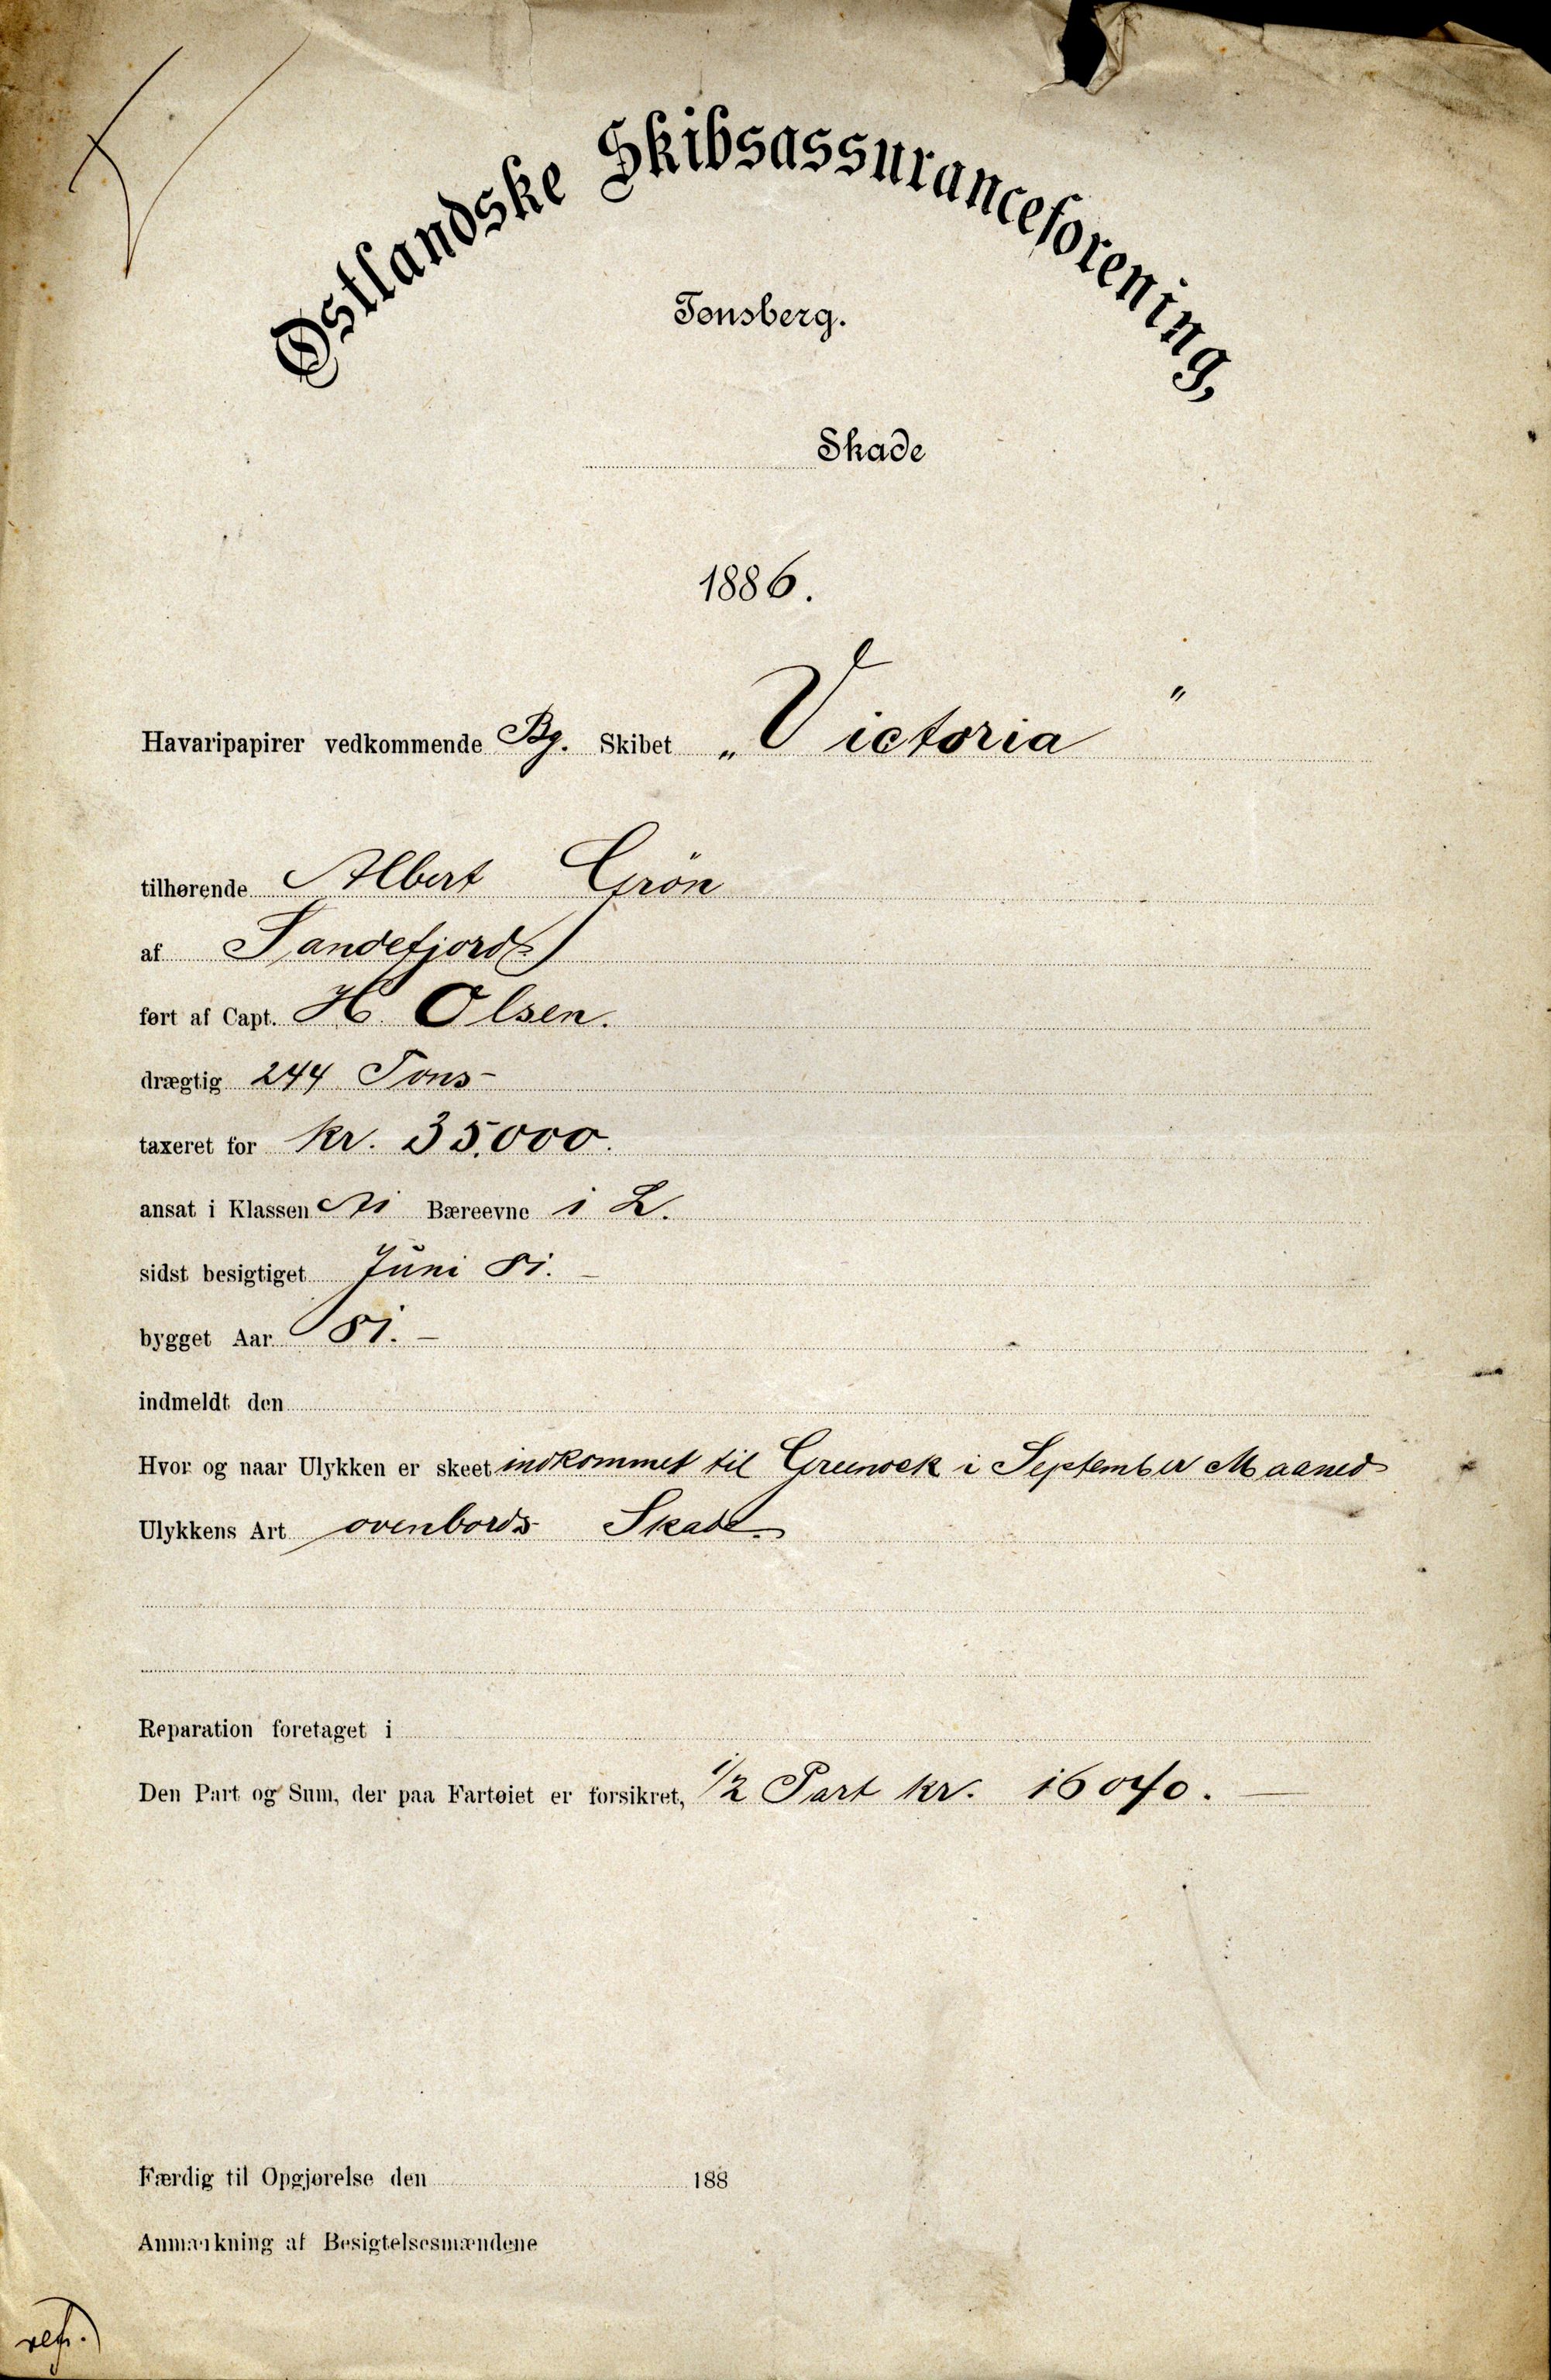 Østlandske Skibsassuranceforening,
Tønsberg.
Skade
1886.
Havaripapirer vedkommende Bg. Skibet „Victoria"
tilhørende Albert Grön
af Sandefjord
ført af Capt. H. Olsen.
drægtig 244 Tons
taxeret for kr. 35.000.
ansat i Klassen A1 Bæreevne i L.
sidst besigtiget Juni 81. –
bygget Aar 81. –
indmeldt den
Hvor og naar Ulykken er skeet indkommet til Greenock i September Maaned
Ulykkens Art ovenbords Skade.
Reparation foretaget i
Den Part og Sum, der paa Fartøiet er forsikret, 1/2 Part kr. 16040. —
Færdig til Opgjørelse den 188
Anmærkning af Besigtelsesmændene